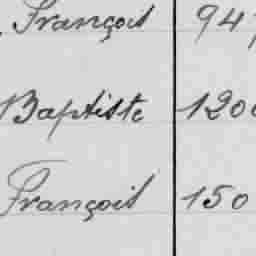 François 947
Baptiste 1200
François 150